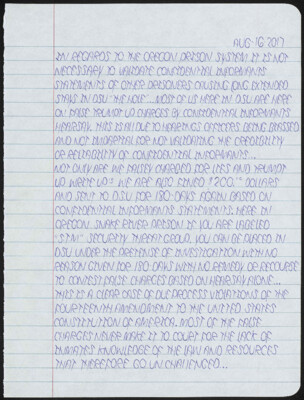 AUG. 16 2017
IN REGARDS TO THE OREGON PRISON SYSTEM IT IS NOT
NECESSARY TO VALIDATE CONFIDENTIAL INFORMANTS
STATEMENTS OF OTHER PRISONERS CAUSING LONG EXTENDED
STAYS IN DSU "THE HOLE". MOST OF US HERE IN DSU ARE HERE
ON FALSE TRUMPT UP CHARGES BY CONFIDENTIAL INFORMANTS
HEARSAY. THIS IS ALL DUE TO HEARINGS OFFICERS BEING BIASSED
AND NOT IMPARTIAL FOR NOT VALIDATING THE CREDIBILITY
OR RELIABILITY OF CONFIDENTIAL INFORMANTS...
NOT ONLY ARE WE FALSELY CHARGED FOR LIES AND TRUMPT
UP WRITE UPS: WE ARE ALSO FINED "200." DOLLARS
AND SENT TO DSU FOR 180 DAYS AGAIN BASED ON
CONFIDENTIAL INFORMANTS STATEMENTS. HERE IN
OREGON SNAKE RIVER PRISON IF YOU ARE LABELED
"STM" SECURITY THREAT GROUP. YOU CAN BE PLACED IN
DSU UNDER THE PRETENSE OF INVESTIGATION WITH NO
REASON GIVEN FOR 180 DAYS WITH NO REMEDY OR RECOURSE
TO CONTEST FALSE CHARGES BASED ON HEARSAY ALONE...
THIS IS A CLEAR CASE OF DUE PROCESS VIOLATIONS OF THE
FOURTEENTH AMENDMENT TO THE UNITED STATES
CONSTITUTION OF AMERICA. MOST OF THE FALSE
CHARGES NEVER MAKE IT TO COURT FOR THE LACK OF
INMATES KNOWLEDGE OF THE LAW AND RESOURCES
THAT THEREFORE GO UNCHALLENGED...